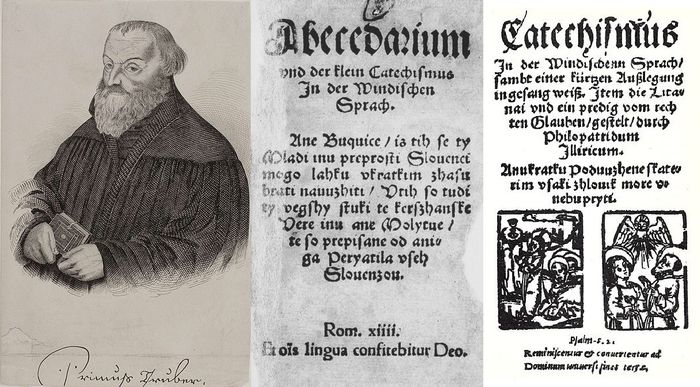 Primus Truber.
Abecedarium
vnd der klein Catechismus
In der Windischen
Sprach.
Ane Buquice / is tih se ty
Mladi inu preprosti Slouenci
mogo lahku vkratkim zhasu
brati nauuzhiti / Vtih so tudi
ty vegshy stuki te kerszhanske
Vere inu ane Molytue /
te so prepisane od aniga
Peryatila vseh
Slouenzou.
Rom. xiiii.
Et oïs lingua confitebitur Deo.
Catechismus
In der Windischenn Sprach/
sambt einer kürtzen Außlegung
in gesang weiß. Item die Litanai
vnd ein predig vom rechten
Glauben/gestelt/durch
Philopatridum
Illiricum.
Anu kratku Poduuzhene skaterim
vsaki zhlouik more vnebu
pryti.
Psalm
Reminiscentur & conuertentur ad
Dominum